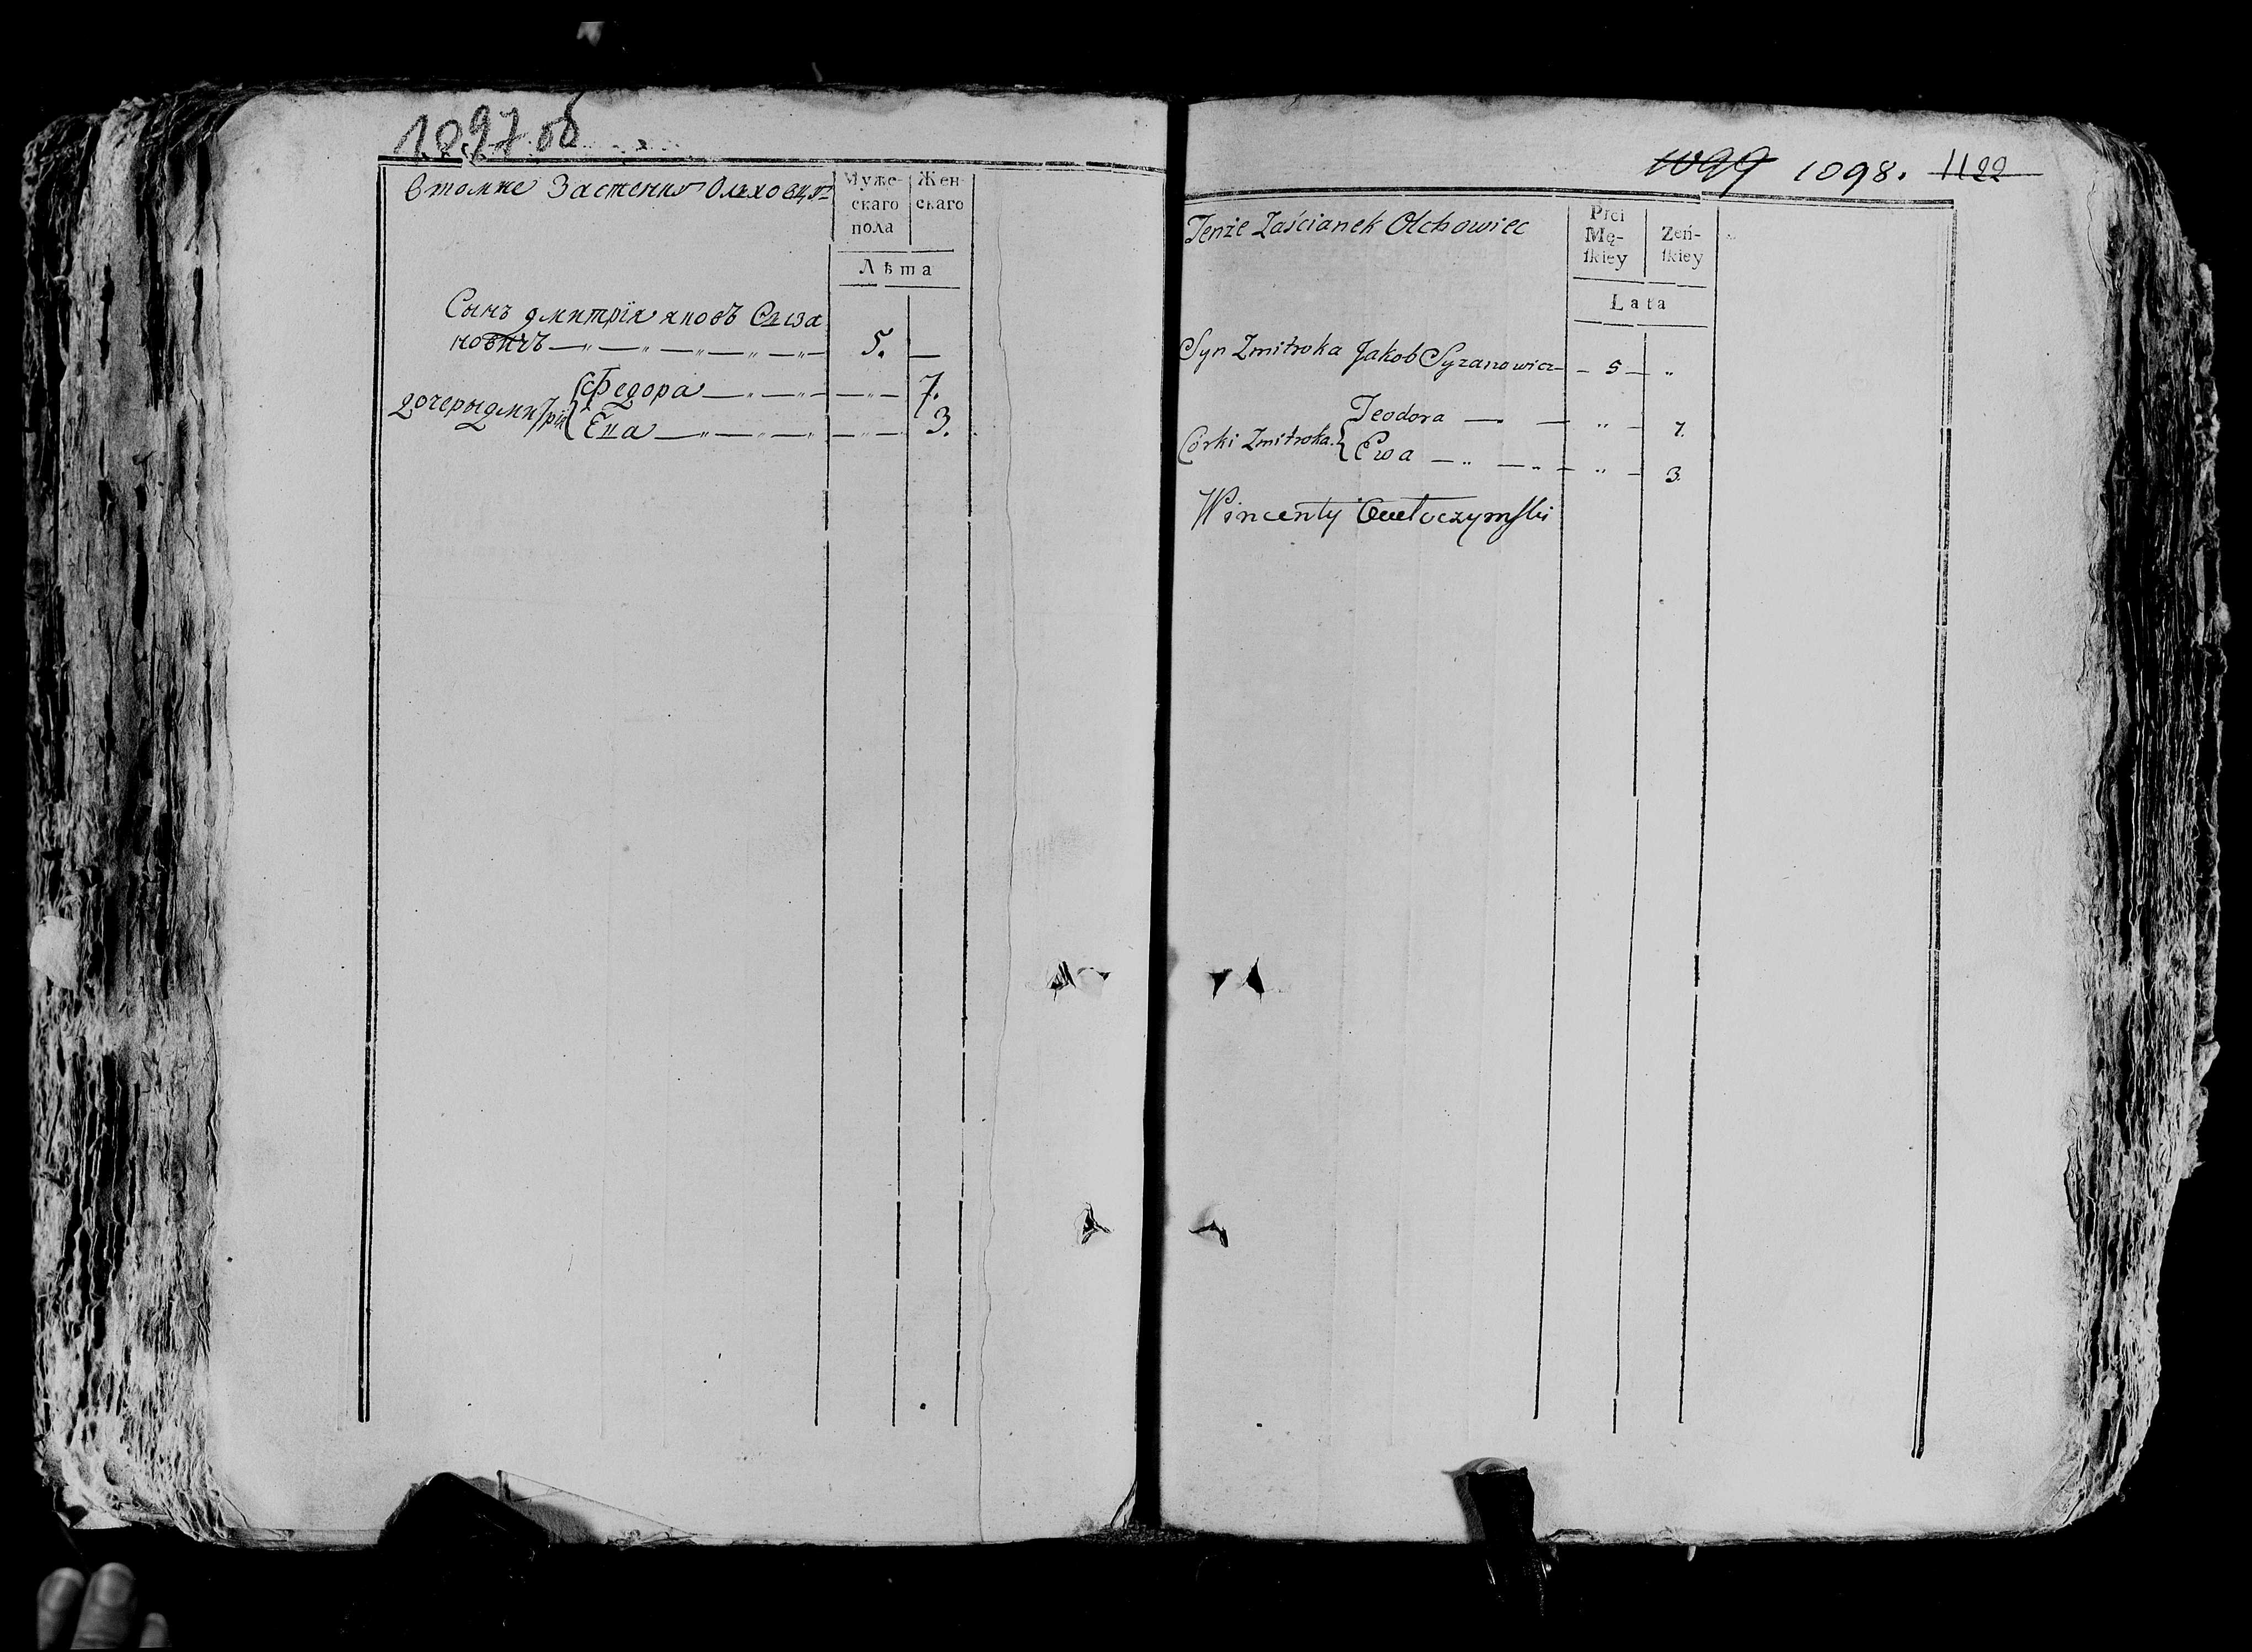 1097 об
в томже Застенке Ольховце
Муже-
скаго
пола
Жен-
скаго
Лѣта
Сынъ дмитрїя яковъ Сыза
новичъ 5. —
дочеры дмитрїя Федора 7.
Ева 3.
1099 1098. 1122
Tenże Zaścianek Olchowiec
Płci
Mę-
ſkiey
Żeń-
ſkiey
Lata
Syn Zmitroka Jakob Syzanowicz — 5 — „
Corki Zmitroka Teodora — — „ — 7.
Ewa — „ — „ — „ — 3.
Wincenty